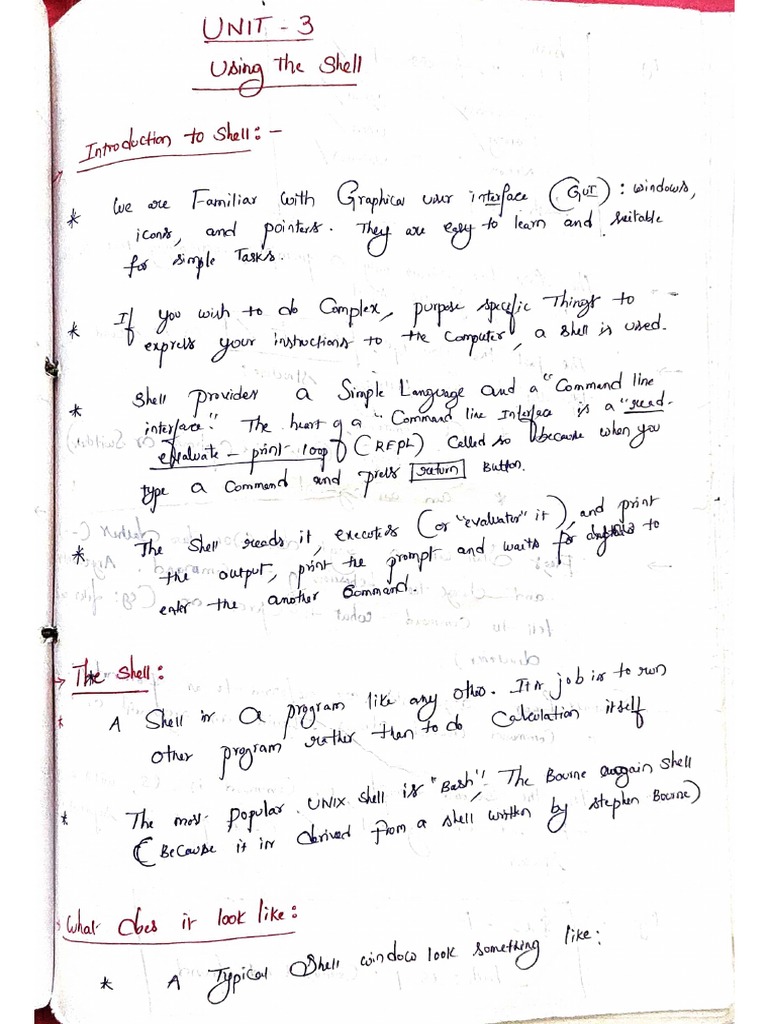 UNIT - 3
Using the Shell
Introduction to Shell: -
* We are Familiar with Graphical user interface (GUI): windows,
icons, and pointers. They are easy to learn and suitable
for simple Tasks.
* If you wish to do Complex, purpose specific Things to
express your instructions to the Computer, a shell is used.
* Shell provides a Simple Language and a "Command line
interface". The heart of a "Command line Interface is a "read-
evaluate - print loop (REPL) Called so because when you
type a Command and press return Button.
* The Shell reads it, executes (or "evaluates" it), and print
the output, print the prompt and waits for to
enter the another Command.
The Shell:
* A Shell is a program like any other. Its job is to run
other program rather than to do Calculation itself
* The most Popular UNIX shell is "Bash". The Bourne again Shell
(Because it is derived from a shell written by Stephen Bourne)
What does it look like:
* A Typical Shell window look something like: